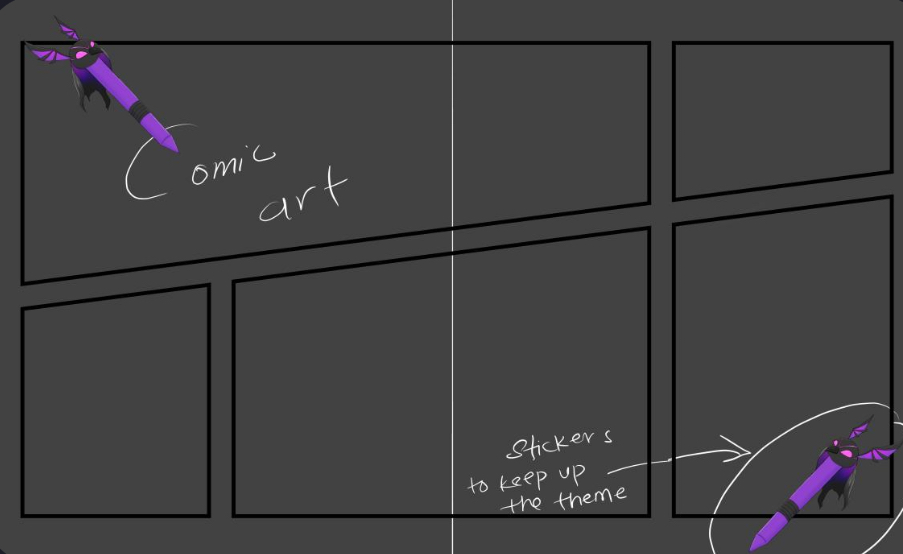 Comic
art
Stickers
to keep up
the theme